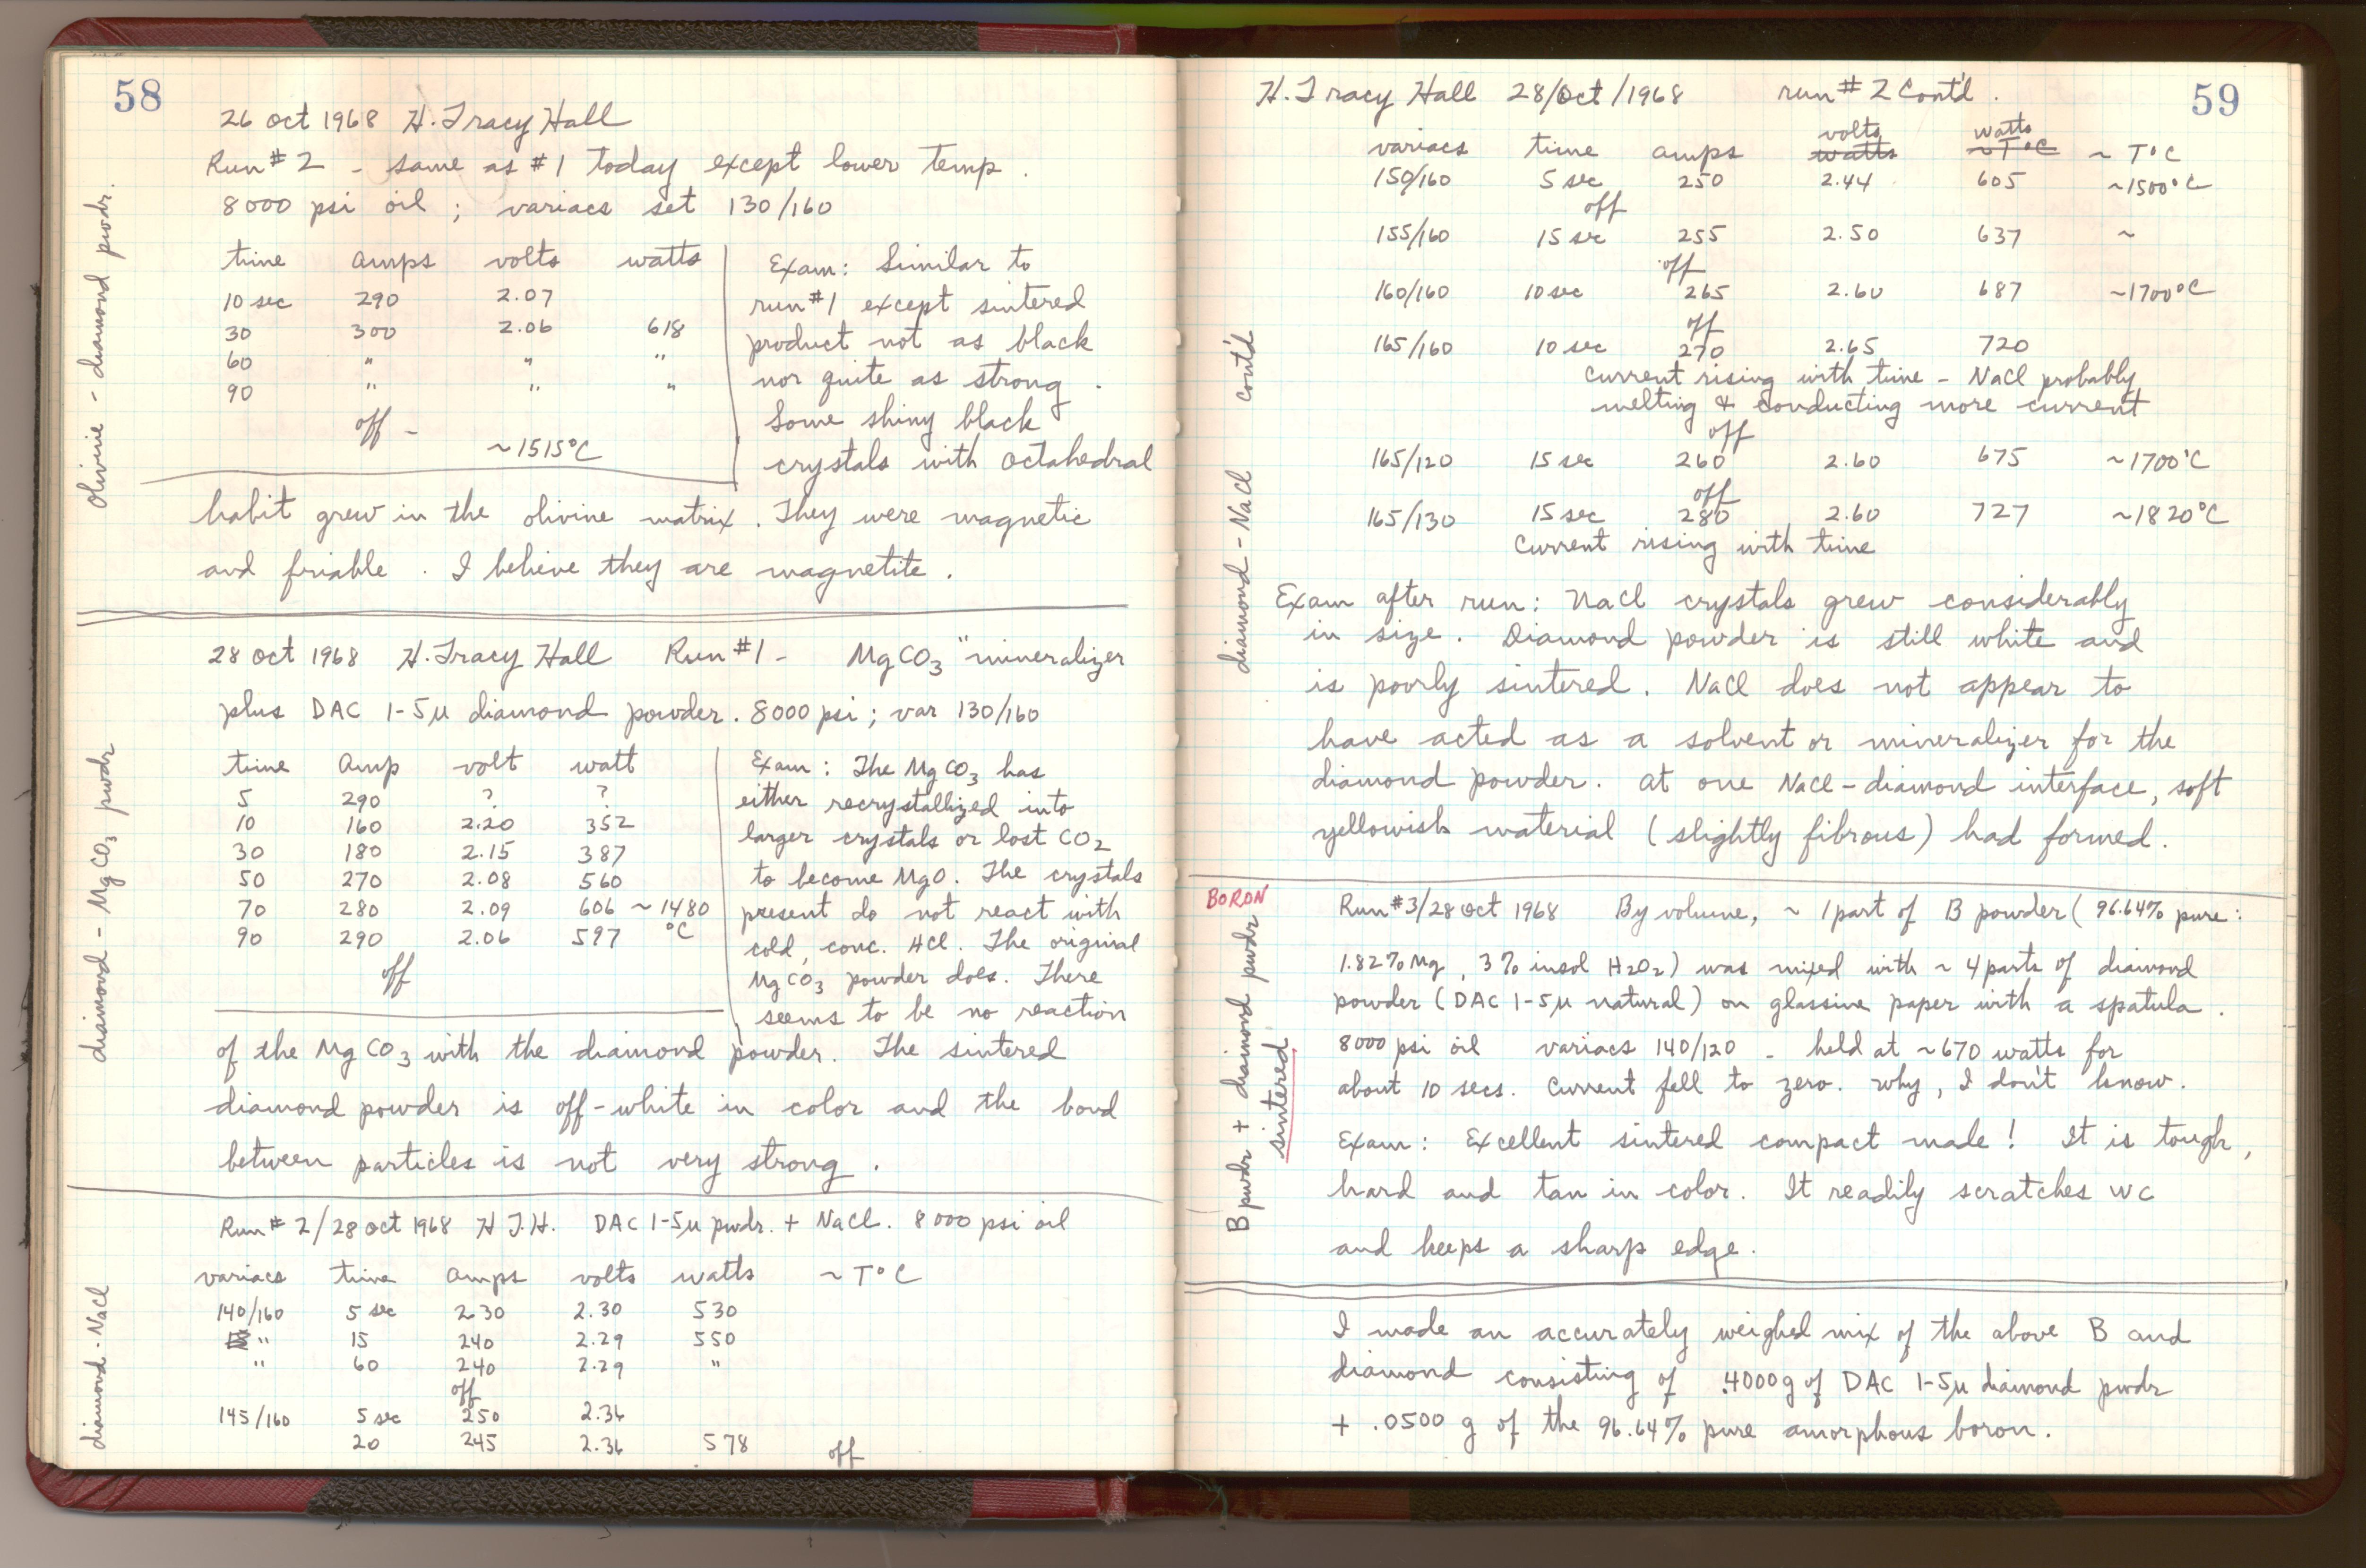 58
26 oct 1968 H. Tracy Hall
Run #2 - same as #1 today except lower temp.
8000 psi oil ; variacs set 130/160
olivine - diamond pwdr.
time amps volts watts
10 sec 290 2.07
30 300 2.06 618
60 " " "
90 " " "
off -
~1515°C
Exam: Similar to
run #1 except sintered
product not as black
nor quite as strong.
Some shiny black
crystals with octahedral
habit grew in the olivine matrix. They were magnetic
and friable. I believe they are magnetite.
28 oct 1968 H. Tracy Hall Run #1 - MgCO3 "mineralizer
plus DAC 1-5μ diamond powder. 8000 psi; var 130/160
diamond - MgCO3 pwdr
time amp volt watt
5 290 ? ?
10 160 2.20 352
30 180 2.15 387
50 270 2.08 560
70 280 2.09 606 ~1480
90 290 2.06 597 °C
off
Exam: The MgCO3 has
either recrystallized into
larger crystals or lost CO2
to become MgO. The crystals
present do not react with
cold, conc. HCl. The original
MgCO3 powder does. There
seems to be no reaction
of the MgCO3 with the diamond powder. The sintered
diamond powder is off-white in color and the bond
between particles is not very strong.
Run #2/28 oct 1968 H T.H. DAC 1-5μ pwdr. + NaCl. 8000 psi oil
diamond - NaCl
variacs time amps volts watts ~T°C
140/160 5 sec 230 2.30 530
" 15 240 2.29 550
" 60 240 2.29 "
off
145/160 5 sec 250 2.36
20 245 2.36 578 off
H. Tracy Hall 28/Oct/1968 run #2 Cont'd.
59
volts watts
variacs time amps watts ~T°C ~T°C
150/160 5 sec 250 2.44 605 ~1500°C
off
155/160 15 sec 255 2.50 637 ~
off
160/160 10 sec 265 2.60 687 ~1700°C
off
165/160 10 sec 270 2.65 720
current rising with time - NaCl probably
melting & conducting more current
off
165/120 15 sec 260 2.60 675 ~1700°C
off
165/130 15 sec 280 2.60 727 ~1820°C
Current rising with time
diamond - NaCl cont'd
Exam after run: NaCl crystals grew considerably
in size. Diamond powder is still white and
is poorly sintered. NaCl does not appear to
have acted as a solvent or mineralizer for the
diamond powder. At one NaCl-diamond interface, soft
yellowish material (slightly fibrous) had formed.
BORON
B pwdr + diamond pwdr
sintered
Run #3/28 oct 1968 By volume, ~ 1 part of B powder (96.64% pure:
1.82% Mg, 3% insol H2O2) was mixed with ~ 4 parts of diamond
powder (DAC 1-5μ natural) on glassine paper with a spatula.
8000 psi oil variacs 140/120 - held at ~670 watts for
about 10 secs. Current fell to zero. Why, I don't know.
Exam: Excellent sintered compact made! It is tough,
hard and tan in color. It readily scratches WC
and keeps a sharp edge.
I made an accurately weighed mix of the above B and
diamond consisting of .4000g of DAC 1-5μ diamond pwdr
+ .0500 g of the 96.64% pure amorphous boron.